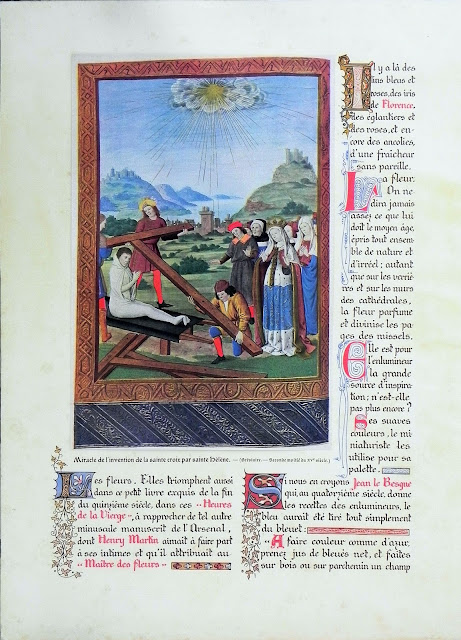 Il y a là des
lins bleus et
roses, des iris
de Florence.
des églantiers et
des roses, et en-
core des ancolies,
d'une fraîcheur
sans pareille.
La fleur.
On ne
dira jamais
assez ce que lui
doit le moyen âge,
épris tout ensem-
ble de nature et
d'irréel ; autant
que sur les verriè-
res et sur les murs
des cathédrales,
la fleur parfume
et divinise les pa-
ges des missels.
Elle est pour
l'enlumineur
la grande
source d'inspira-
tion ; n'est-elle
pas plus encore ?
Ses suaves
couleurs, le mi-
niaturiste les
utilise pour sa
palette.
Miracle de l'invention de la sainte croix par sainte Hélène. — (Bréviaire. — Seconde moitié du XVe siècle.)
Les fleurs. Elles triomphent aussi
dans ce petit livre exquis de la fin
du quinzième siècle, dans ces "Heures
de la Vierge", à rapprocher de tel autre
minuscule manuscrit de l'Arsenal,
dont Henry Martin aimait à faire part
à ses intimes et qu'il attribuait au
"Maître des fleurs"
Si nous en croyons Jean le Besgue
qui, au quatorzième siècle, donne
les recettes des enlumineurs, le
bleu aurait été tiré tout simplement
du bleuet :
"A faire couleur comme d'azur,
prenez jus de bleuès net, et faites
sur bois ou sur parchemin un champ